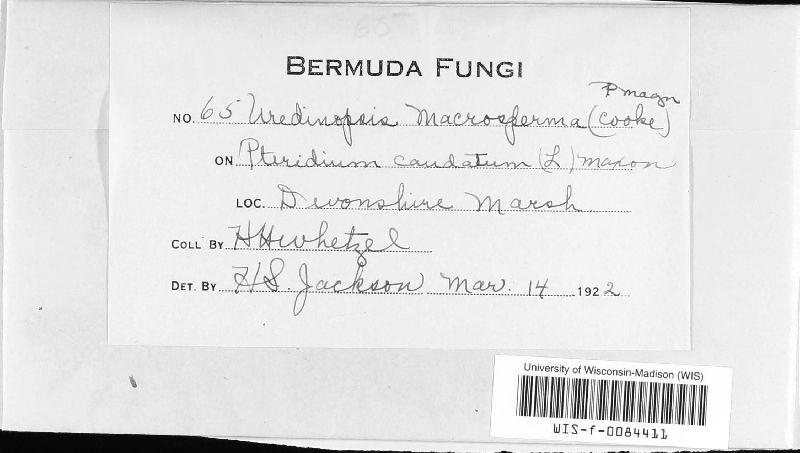 65
BERMUDA FUNGI
NO. 65 Uredinopsis Macrosperma (Cooke) P magn
ON Pteridium caudatum (L) maxon
LOC. Devonshire Marsh
COLL BY HHWhetzel
DET. BY HS. Jackson Mar. 14 1922
University of Wisconsin-Madison (WIS)
WIS-f-0084411